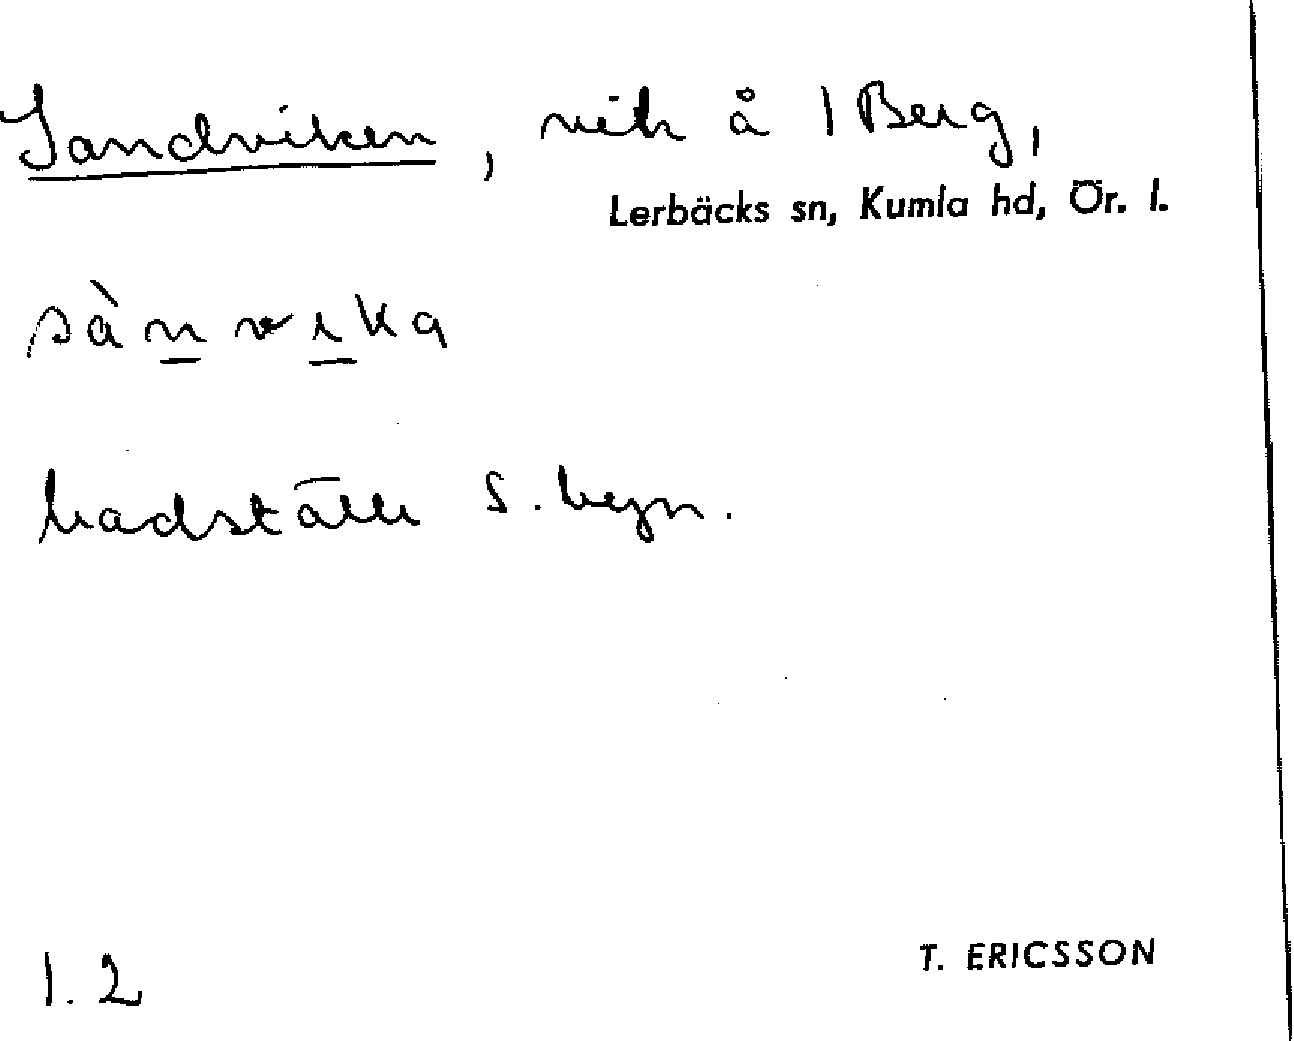 Sandviken, vik å 1 Berg,
Lerbäcks sn, Kumla hd, Ör. l.
sànvika
badställe S. byn.
1.2
T. ERICSSON